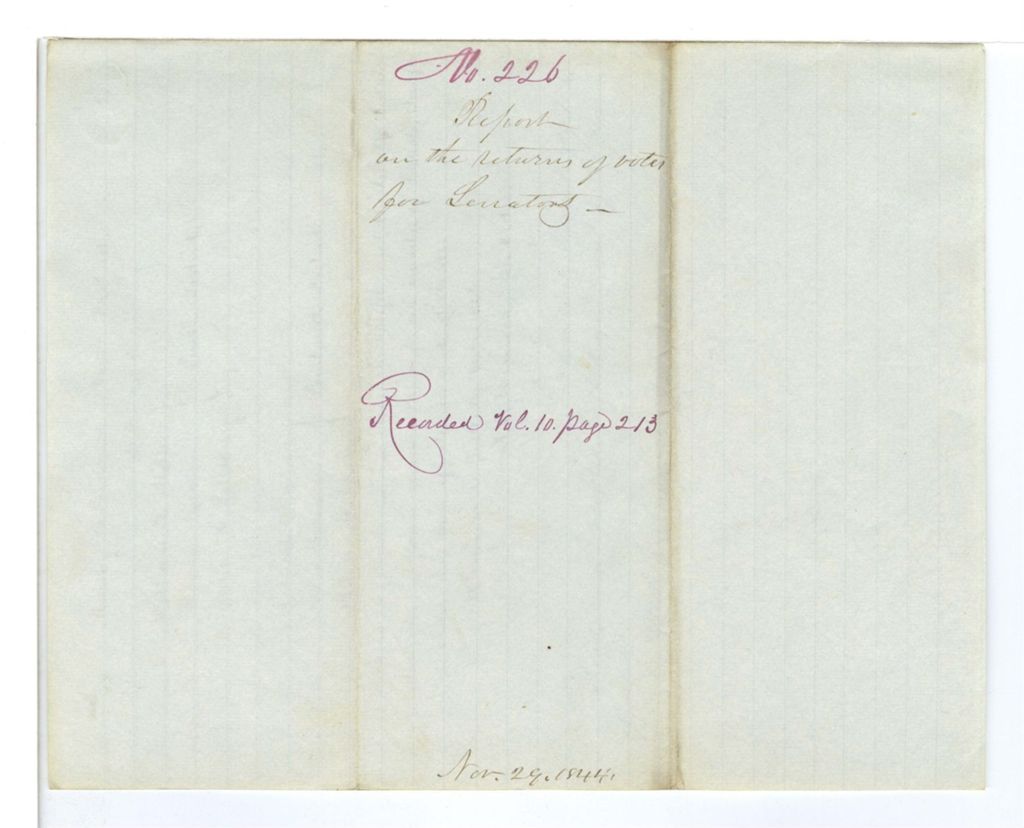 No. 226
Report
on the returns of votes
for Senators —
Recorded Vol. 10. page 213
Nov. 29. 1844.